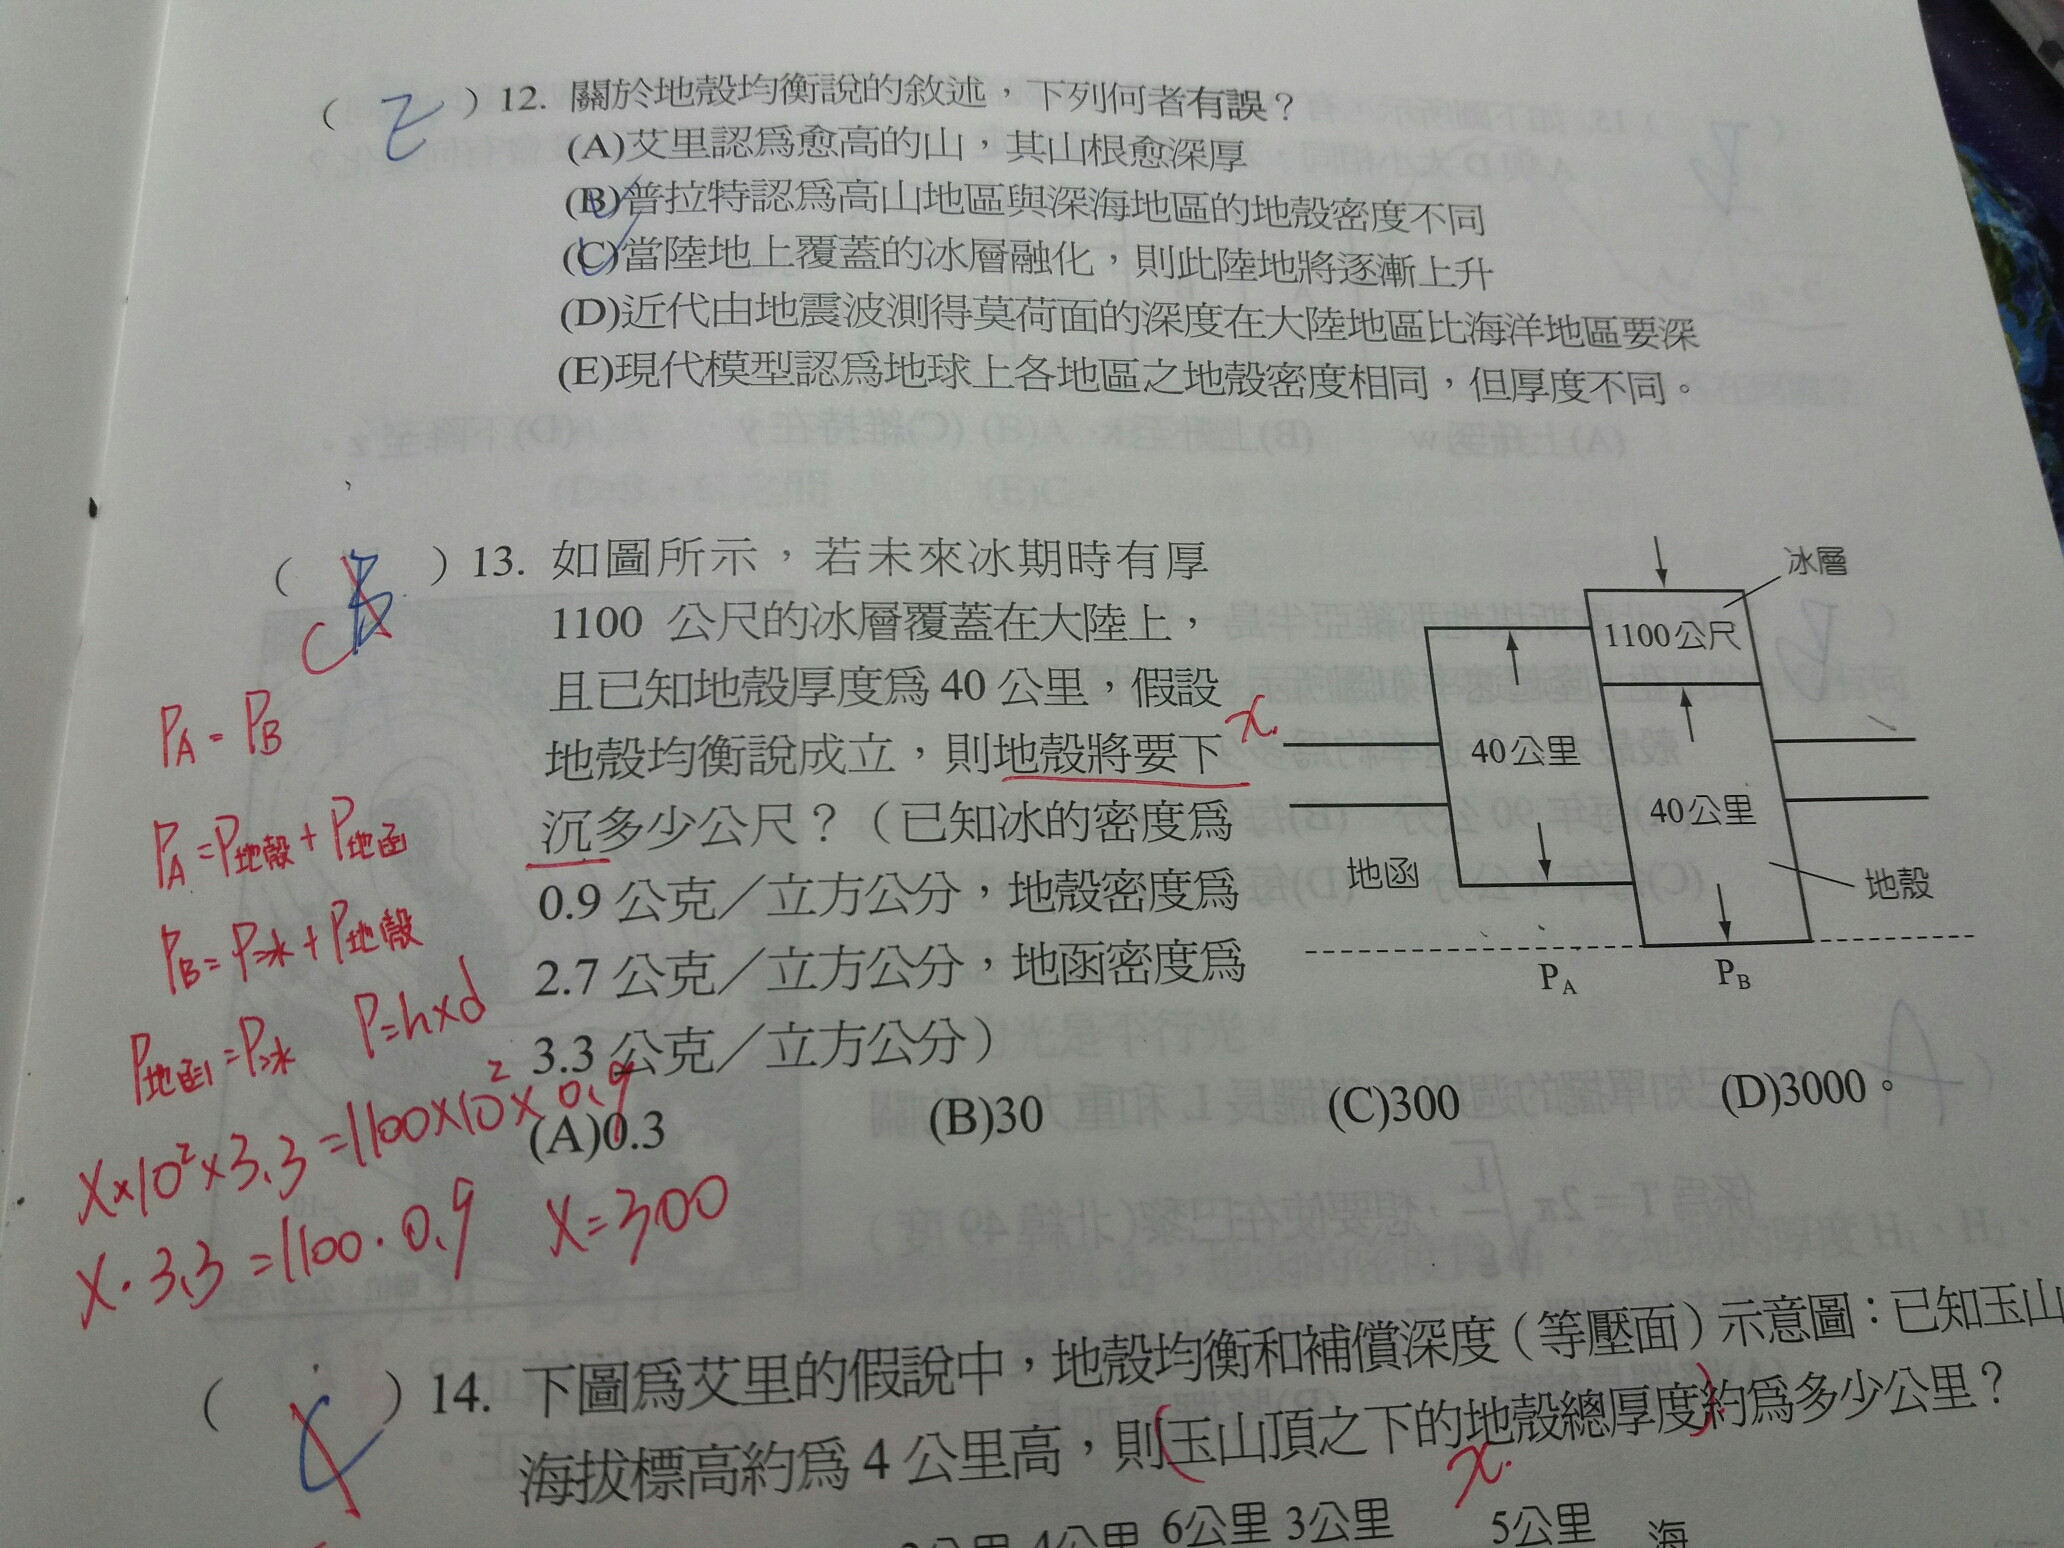 ( E ) 12. 關於地殼均衡說的敘述，下列何者有誤？
(A)艾里認為愈高的山，其山根愈深厚
(B)普拉特認為高山地區與深海地區的地殼密度不同
(C)當陸地上覆蓋的冰層融化，則此陸地將逐漸上升
(D)近代由地震波測得莫荷面的深度在大陸地區比海洋地區要深
(E)現代模型認為地球上各地區之地殼密度相同，但厚度不同。
( B ) 13. 如圖所示，若未來冰期時有厚
C
1100 公尺的冰層覆蓋在大陸上，
且已知地殼厚度為 40 公里，假設
地殼均衡說成立，則地殼將要下
x.
沉多少公尺？（已知冰的密度為
0.9 公克／立方公分，地殼密度為
2.7 公克／立方公分，地函密度為
3.3 公克／立方公分）
(A)0.3 (B)30 (C)300 (D)3000。
冰層
1100公尺
40公里
40公里
地函
地殼
PA PB
PA = PB
PA = P地殼 + P地函
PB = P冰 + P地殼
P地函 = P冰 P=h×d
X×10²×3.3 = 1100×10²×0.9
X·3.3 = 1100·0.9 X=300
( C ) 14. 下圖為艾里的假說中，地殼均衡和補償深度（等壓面）示意圖：已知玉山
海拔標高約為 4 公里高，則(玉山頂之下的地殼總厚度)約為多少公里？
x.
4公里 6公里 3公里 5公里 海